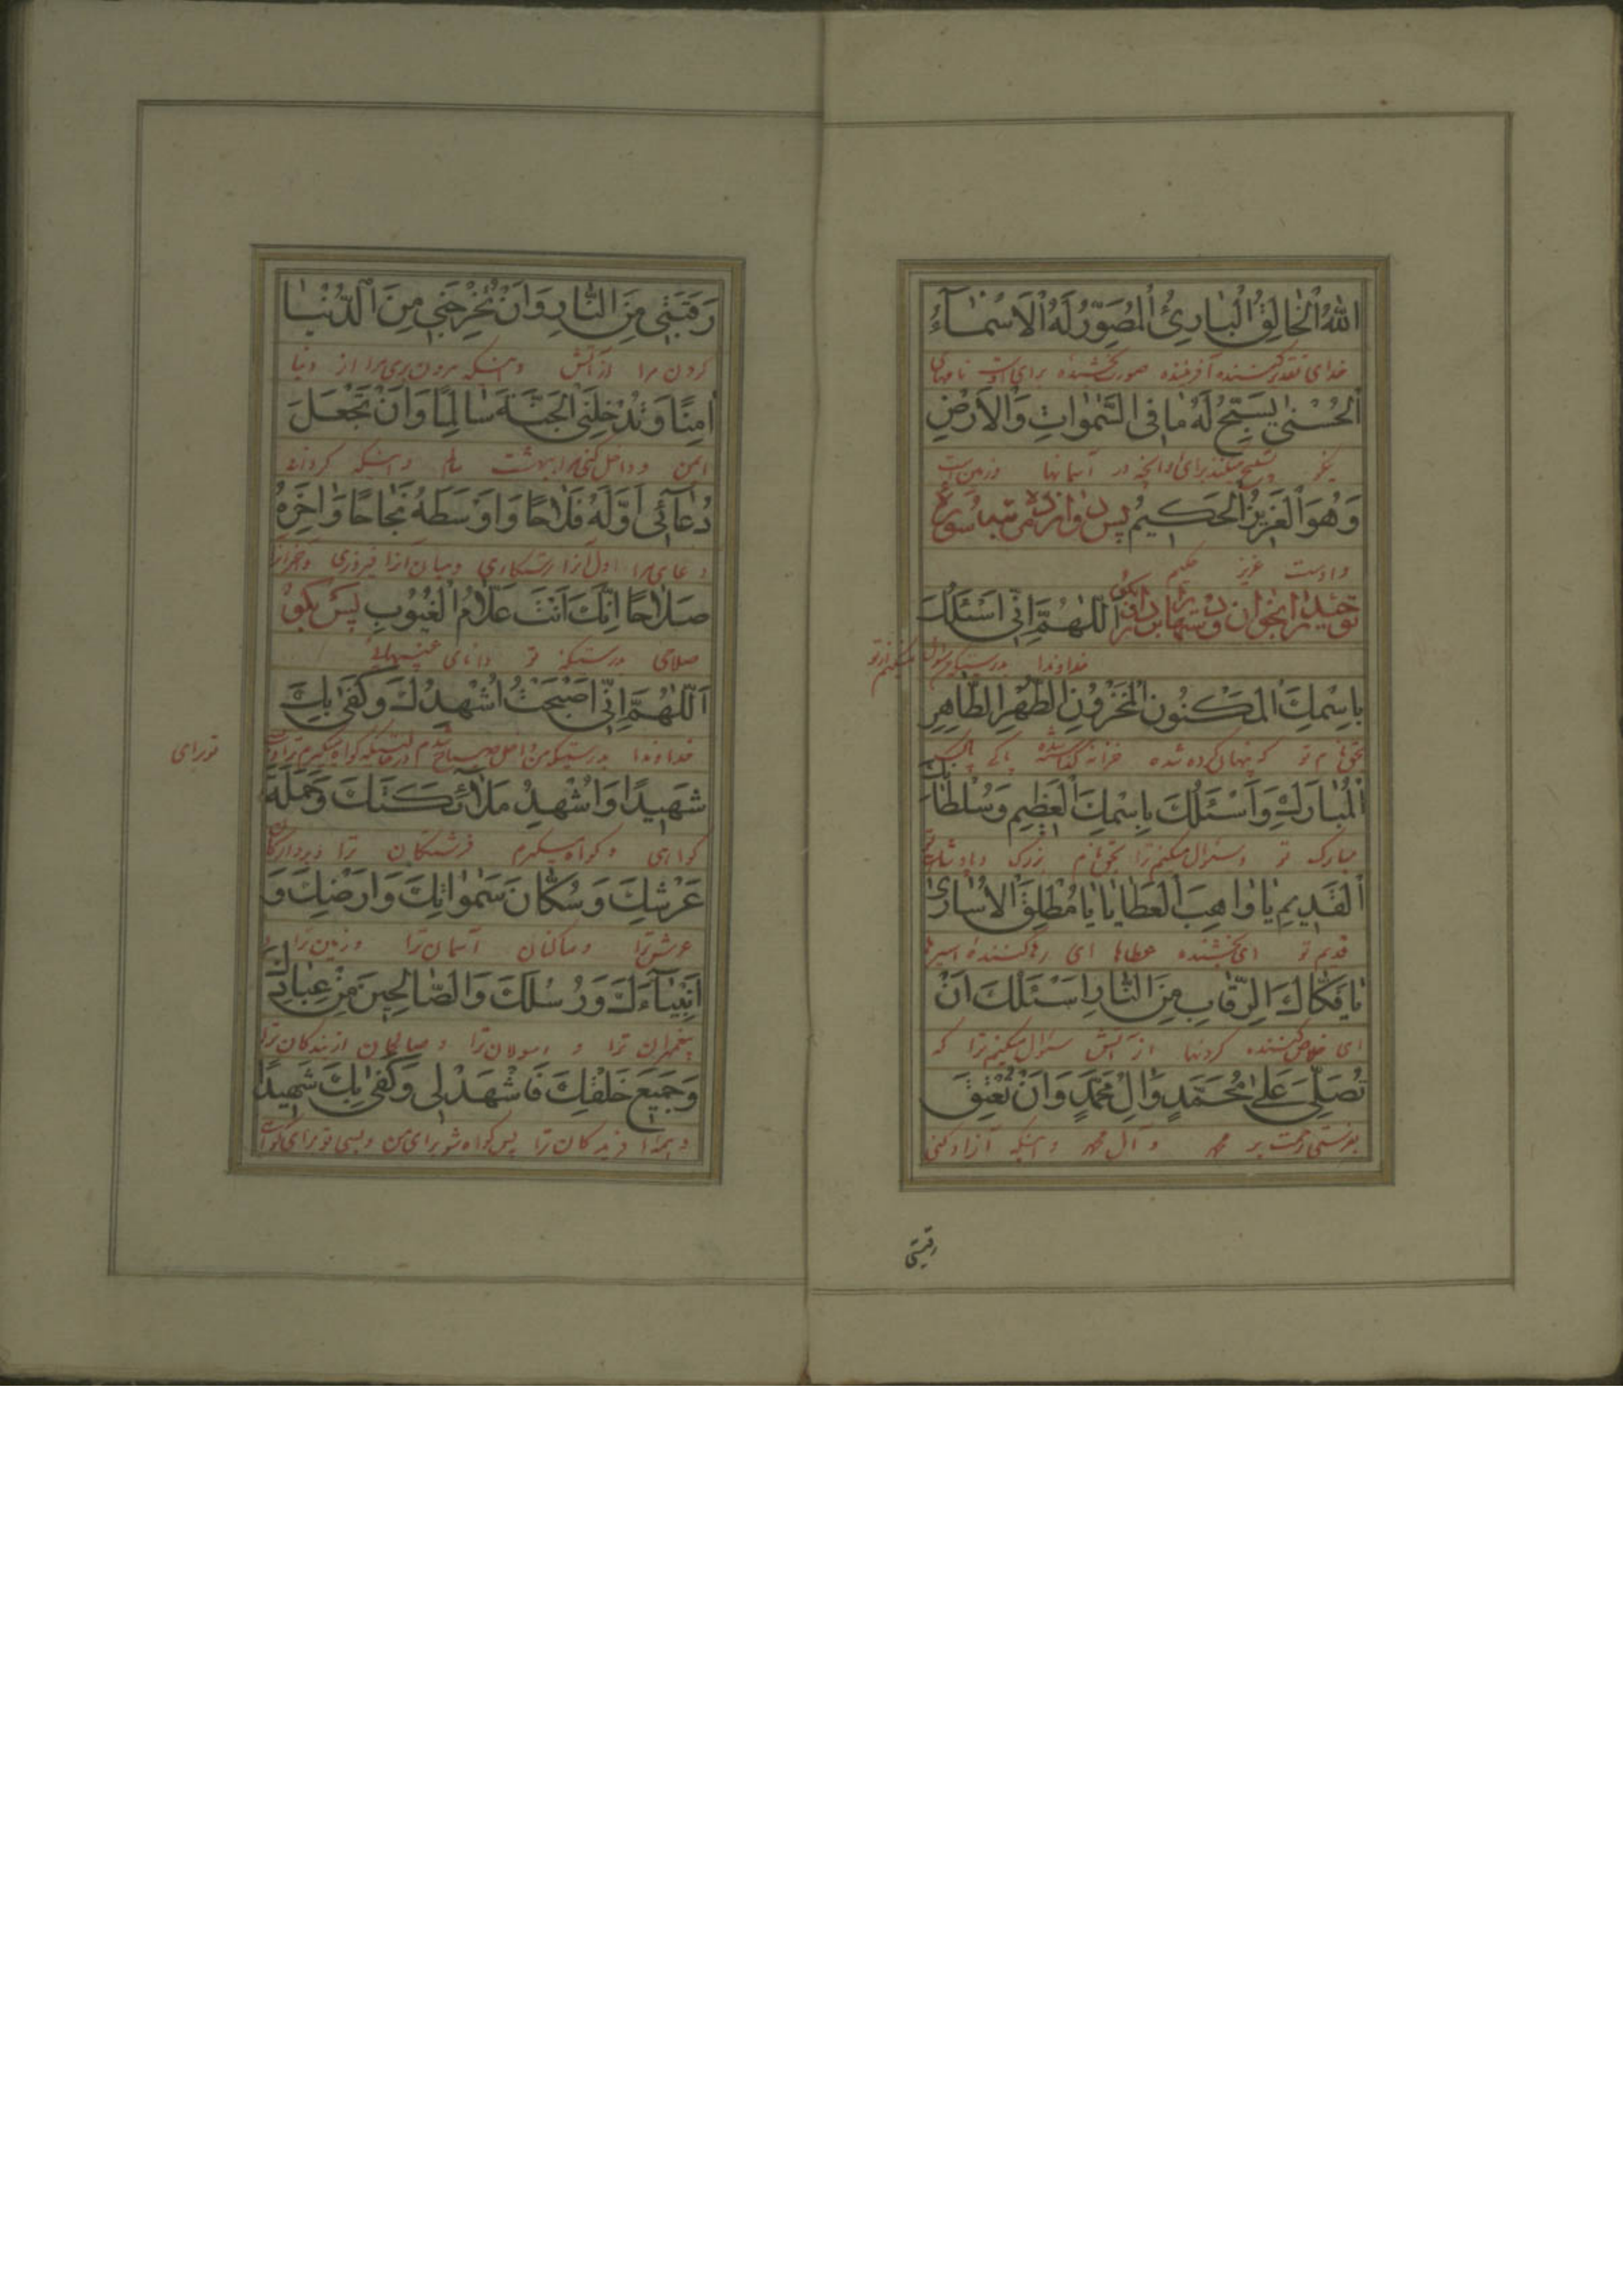 اللهُ الْخَالِقُ الْبَارِئُ الْمُصَوِّرُ لَهُ الْاَسْمَآءُ
خدای تقدیر کننده آفریننده صورت بخشنده برای اوست نامهای
الْحُسْنٰی یُسَبِّحُ لَهُ مَا فِی السَّمٰوَاتِ وَالْاَرْضِ
نیکو تسبیح میکند برای او آنچه در آسمانها و زمین است
وَهُوَ الْعَزِیزُ الْحَکِیمُ پس دوازده مرتبه سوره
و اوست عزیز حکیم
توحید را بخوان و دستها بردار و بگو اَللّٰهُمَّ اِنّی اَسْئَلُکَ
خداوندا بدرستیکه سؤال میکنم از تو
بِاسْمِکَ الْمَکْنُونِ الْمَخْزُونِ الطُّهْرِ الطَّاهِرِ
بحق نام تو که پنهان کرده شده خزانه گذاشته شده پاکی پاک
الْمُبَارَکِ وَاَسْئَلُکَ بِاسْمِکَ الْعَظِیمِ وَسُلْطَانِکَ
مبارک تو و سؤال میکنم ترا بحق نام بزرگ و پادشاهی
الْقَدِیمِ یَا وَاهِبَ الْعَطَایَا یَا مُطْلِقَ الْاُسَارٰی
قدیم تو ای بخشنده عطاها ای رها کننده اسیرها
یَا فَکَّاکَ الرِّقَابِ مِنَ النَّارِ اَسْئَلُکَ اَنْ
ای خلاص کننده گردنها از آتش سؤال میکنم ترا که
تُصَلِّیَ عَلٰی مُحَمَّدٍ وَاٰلِ مُحَمَّدٍ وَاَنْ تُعْتِقَ
بفرستی رحمت بر محمد و آل محمد و اینکه آزاد کنی
رقبتی
رَقَبَتِی مِنَ النَّارِ وَاَنْ تُخْرِجَنِی مِنَ الدُّنْیَا
گردن مرا از آتش و اینکه بیرون بری مرا از دنیا
اٰمِنًا وَتُدْخِلَنِی الْجَنَّةَ سَالِمًا وَاَنْ تَجْعَلَ
ایمن و داخل کنی مرا بهشت سالم و اینکه گردانی
دُعَآئِی اَوَّلَهُ فَلَاحًا وَاَوْسَطَهُ نَجَاحًا وَاٰخِرَهُ
دعای مرا اول آنرا رستگاری و میان آنرا فیروزی و آخر آنرا
صَلَاحًا اِنَّکَ اَنْتَ عَلَّامُ الْغُیُوبِ پس بگو
صلاحی بدرستیکه تو دانای غیبهائی
اَللّٰهُمَّ اِنّی اَصْبَحْتُ اُشْهِدُکَ وَکَفٰی بِکَ
خداوندا بدرستیکه من داخل صباح شدم در حالتیکه گواه میگیرم ترا و بس است
تو برای
شَهِیدًا وَاُشْهِدُ مَلَآئِکَتَکَ وَحَمَلَةَ
گواهی و گواه میگیرم فرشتگان ترا و بردارندگان
عَرْشِکَ وَسُکَّانَ سَمٰوَاتِکَ وَاَرْضِکَ وَ
عرش ترا و ساکنان آسمان ترا و زمین ترا و
اَنْبِیَآءَکَ وَرُسُلَکَ وَالصَّالِحِینَ مِنْ عِبَادِکَ
پیغمبران ترا و رسولان ترا و صالحان از بندگان ترا
وَجَمِیعَ خَلْقِکَ فَاشْهَدْ لِی وَکَفٰی بِکَ شَهِیدًا
و همه آفریدگان ترا پس گواه شو برای من و بسی تو برای گواهی